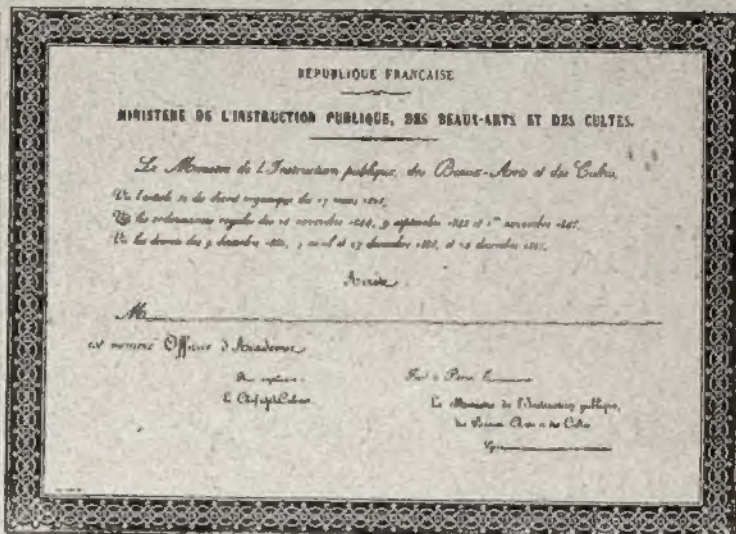 RÉPUBLIQUE FRANÇAISE
MINISTÈRE DE L'INSTRUCTION PUBLIQUE, DES BEAUX-ARTS ET DES CULTES.
Le Ministre de l'Instruction publique, des Beaux-Arts et des Cultes,
Vu l'article 32 du décret organique du 17 mars 1808,
Vu les ordonnances royales des novembre 1844, 9 septembre 1845 et 1er novembre
Vu les décrets des 9 décembre 1850, 7 avril et 27 décembre 1866, et 24 décembre
Arrête :
M
est nommé Officier d'Académie
Pour ampliation :
Le Chef du Cabinet
Fait à Paris, le
Le Ministre de l'Instruction publique,
des Beaux-Arts et des Cultes
Signé